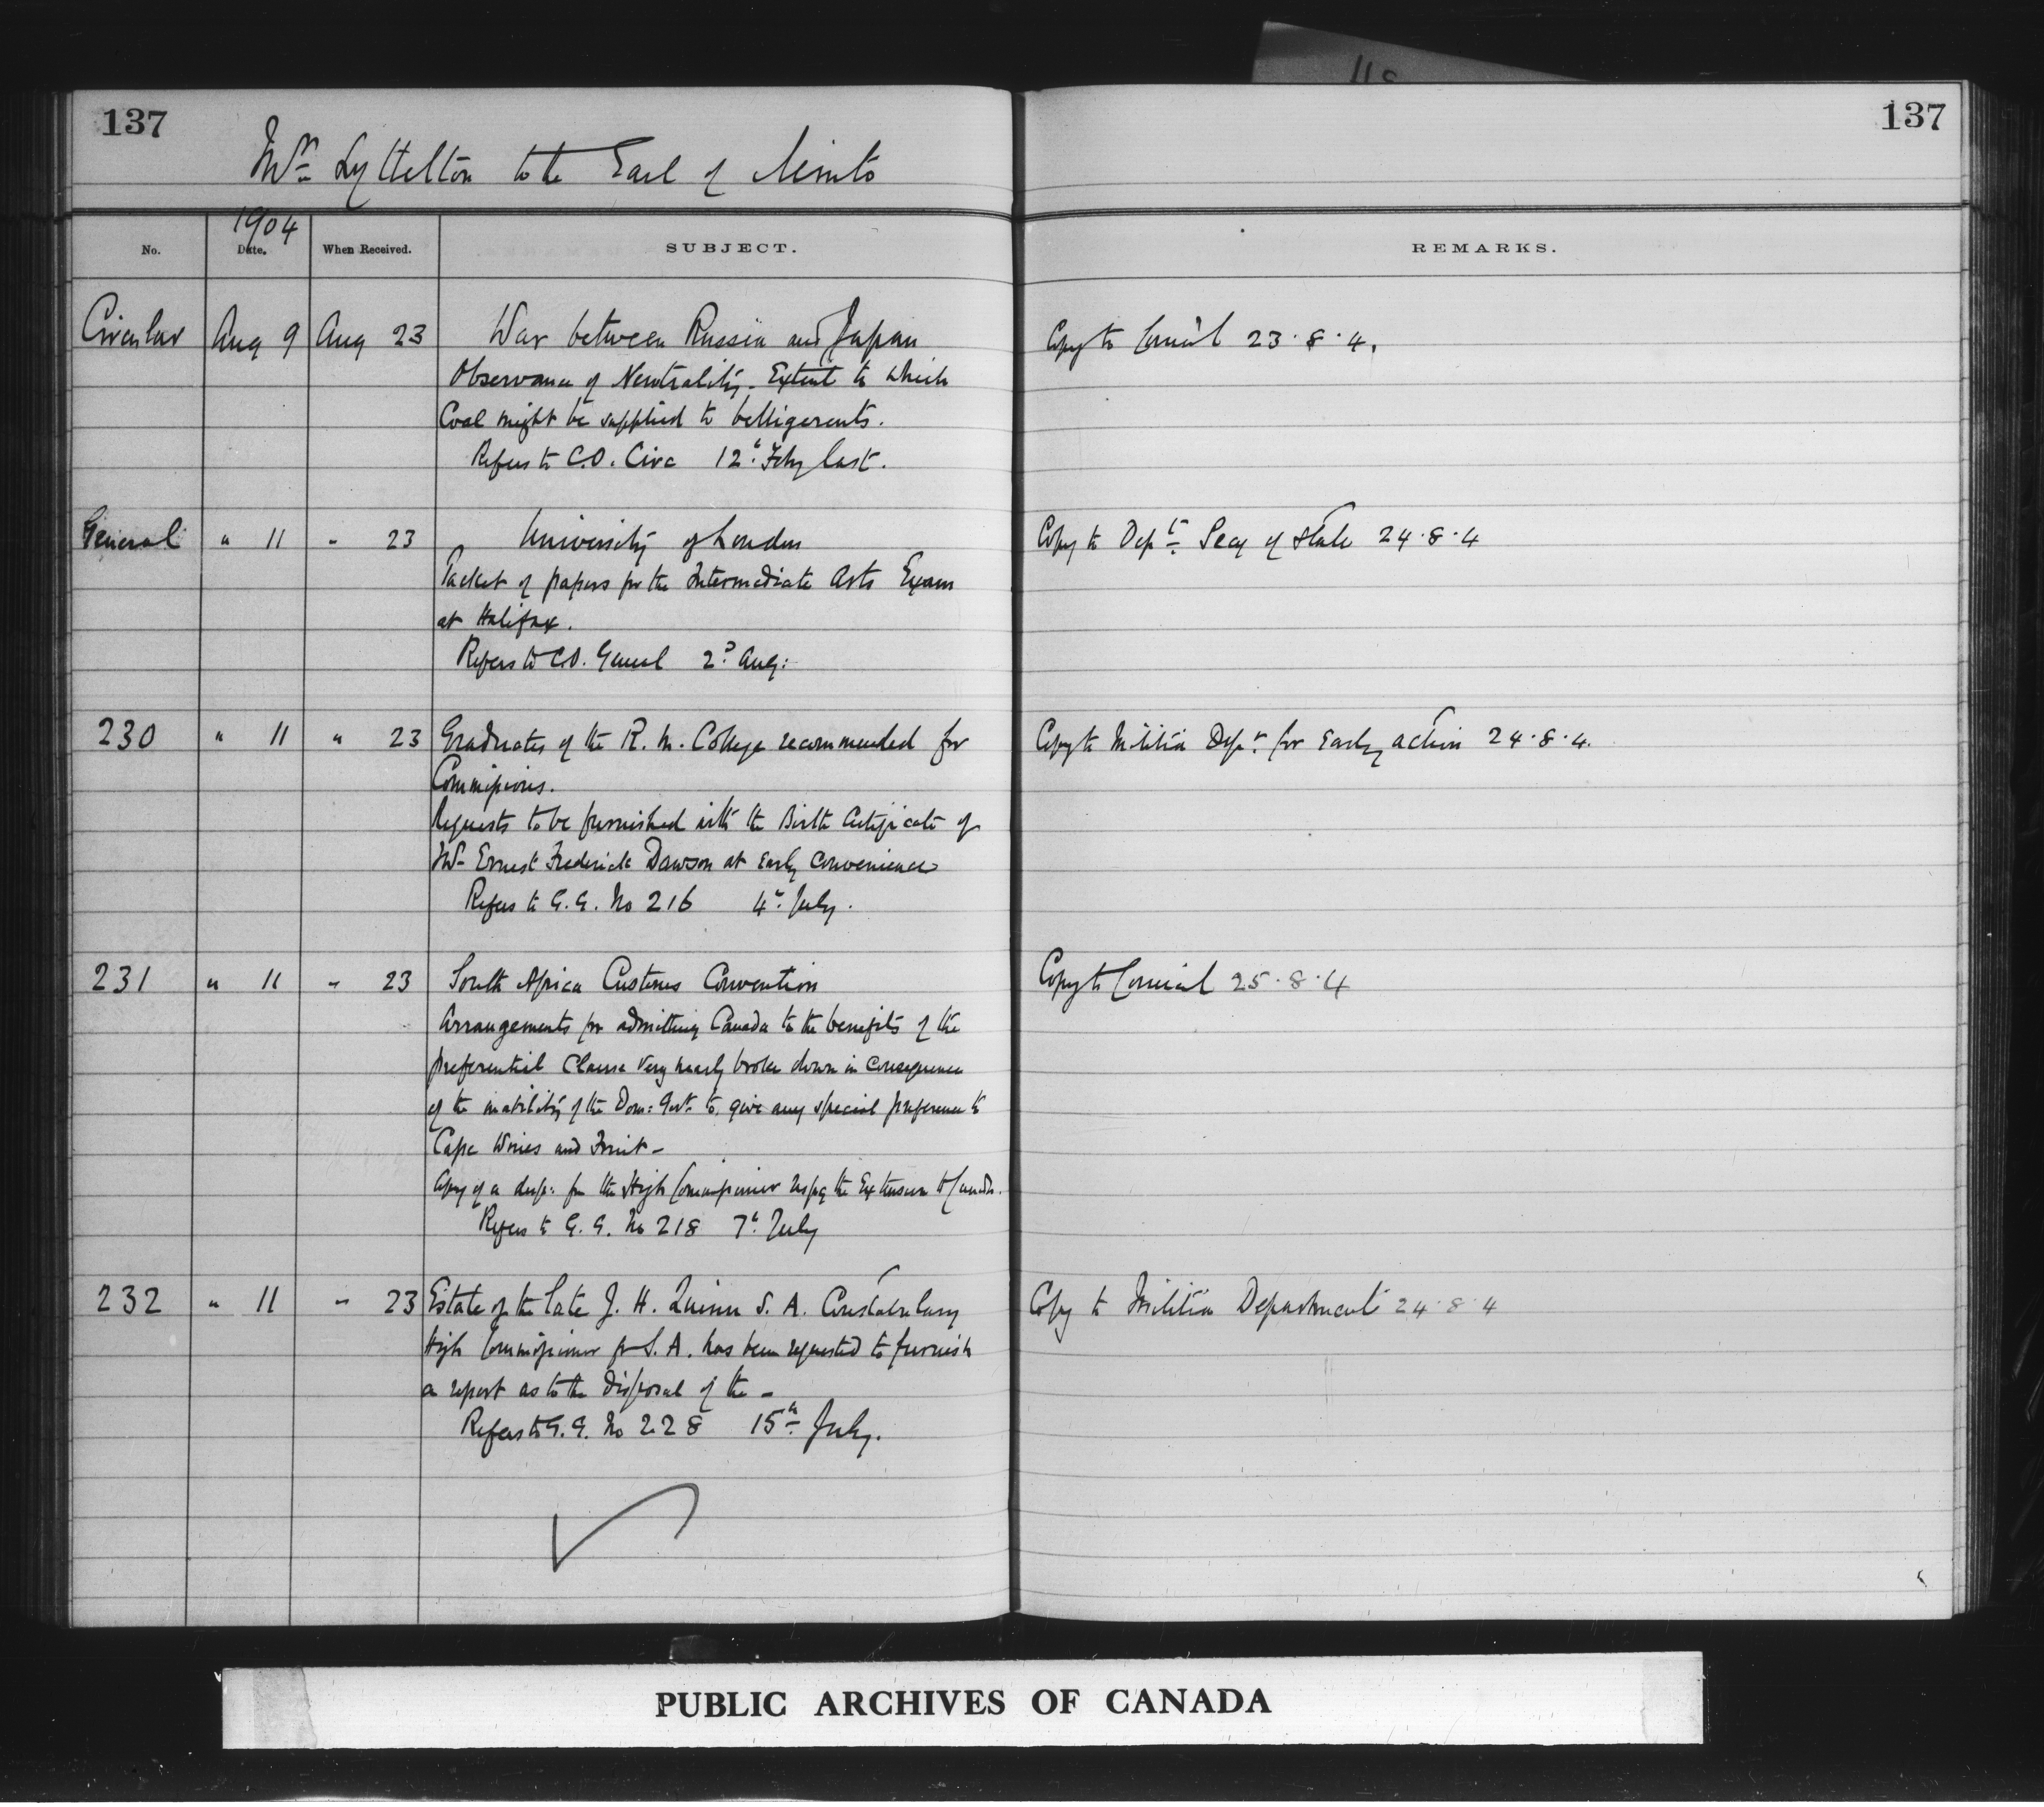 137
137
Mr Lyttelton to the Earl of Minto
1904
No. Date. When Received. SUBJECT. REMARKS.
Circular Aug 9 Aug 23 War between Russia and Japan Copy to Council 23.8.4.
Observance of Neutrality. Extent to which
Coal might be supplied to belligerents.
Refers to C.O. Circ 12th Feby last.
General " 11 " 23 University of London Copy to Dept Secy of State 24.8.4
Packet of papers for the Intermediate Arts Exam
at Halifax.
Refers to C.O. General 2d Aug:
230 " 11 " 23 Graduates of the R. M. College recommended for Copy to Militia Dept for early action 24.8.4.
Commissions.
Requests to be furnished with the Birth Certificate of
Mr Ernest Frederick Dawson at early convenience
Refers to G.G. No 216 4th July.
231 " 11 " 23 South Africa Customs Convention Copy to Council 25.8.4
Arrangements for admitting Canada to the benefits of the
preferential Clause very nearly broke down in consequence
of the inability of the Dom: Govt to give any special preference to
Cape Wines and Fruit -
Copy of a desp: fm the High Commissioner respg the Extension to Canada.
Refers to G.G. No 218 7th July
232 " 11 " 23 Estate of the late J. H. Quinn S. A. Constabulary Copy to Militia Department 24.8.4
High Commissioner for S. A. has been requested to furnish
a report as to the disposal of the -
Refers to G.G. No 228 15th July.
PUBLIC ARCHIVES OF CANADA